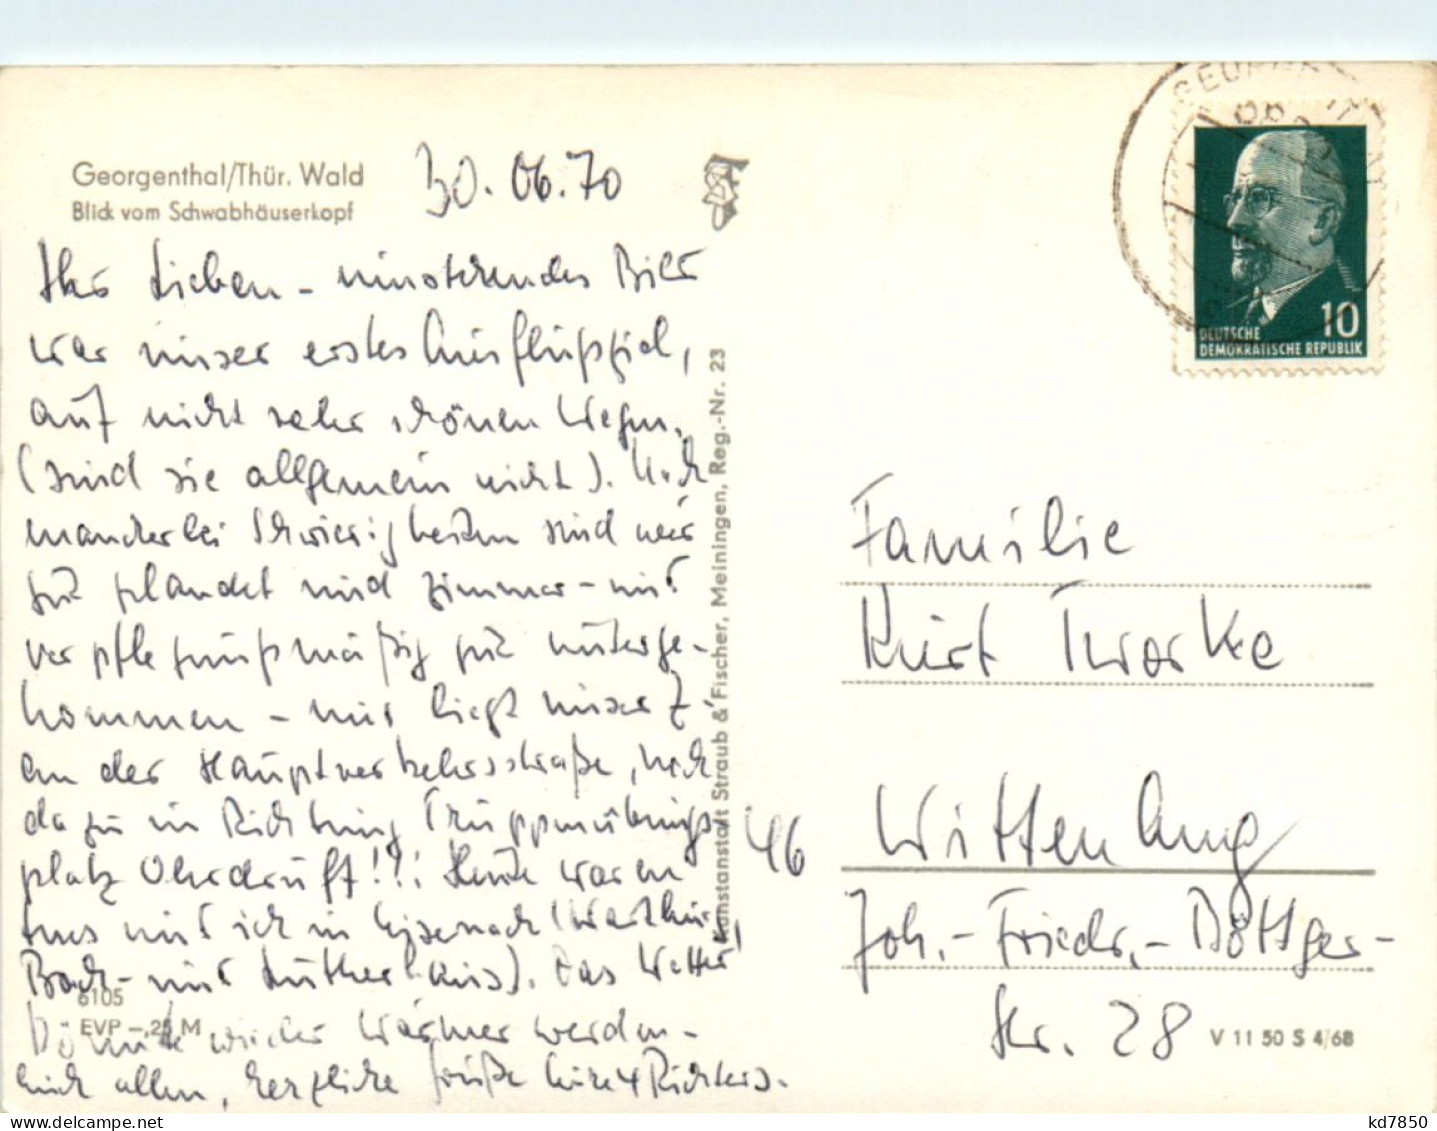 Georgenthal/Thür. Wald
Blick vom Schwabhäuserkopf
30.06.70
Ihr Lieben - umstehendes Bild
war unser erstes Ausflugsziel,
auf nicht sehr schönen Wegen.
(sind sie allgemein nicht). Nach
mancherlei Schwierigkeiten sind wir
gut gelandet und zimmer- und
verpflegungsmäßig gut unterge-
kommen - nur liegt unser Z.
an der Hauptverkehrsstraße, noch
dazu in Richtung Truppenübungs-
platz Ohrdruff!!! Heute waren
und ich in Eisenach (Wartburg,
Bach- und Lutherhaus). Das Wetter
könnte wieder wärmer werden -
Euch allen, herzliche Grüße Eure 4 Richters.
6105
EVP -,25 M
Kunstanstalt Straub & Fischer, Meiningen, Reg.-Nr. 23
DEUTSCHE
DEMOKRATISCHE REPUBLIK
10
Familie
Kurt Tworke
46 Wittenberg
Joh.-Friedr.-Böttger-
Str. 28
V 11 50 S 4/68
kd7850